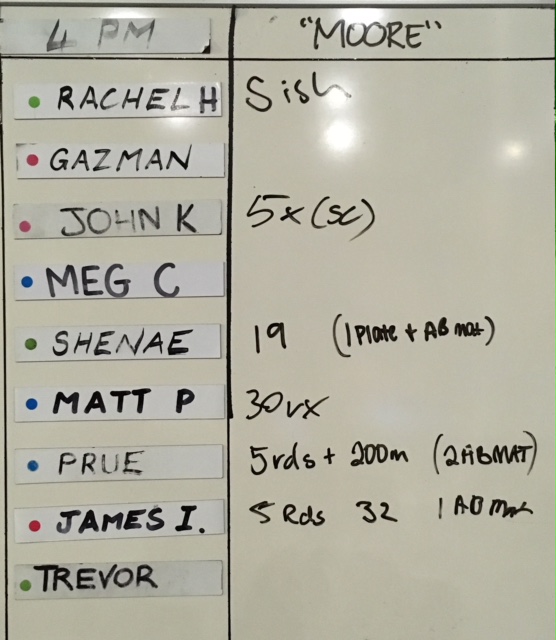 4 PM "MOORE"
RACHEL H 5ish
GAZMAN
JOHN K 5x (sc)
MEG C
SHENAE 19 (1 Plate + AB mat)
MATT P
PRUE 5rds + 200m (2ABMAT)
JAMES I. 5 Rds 32 1 AB mat
TREVOR